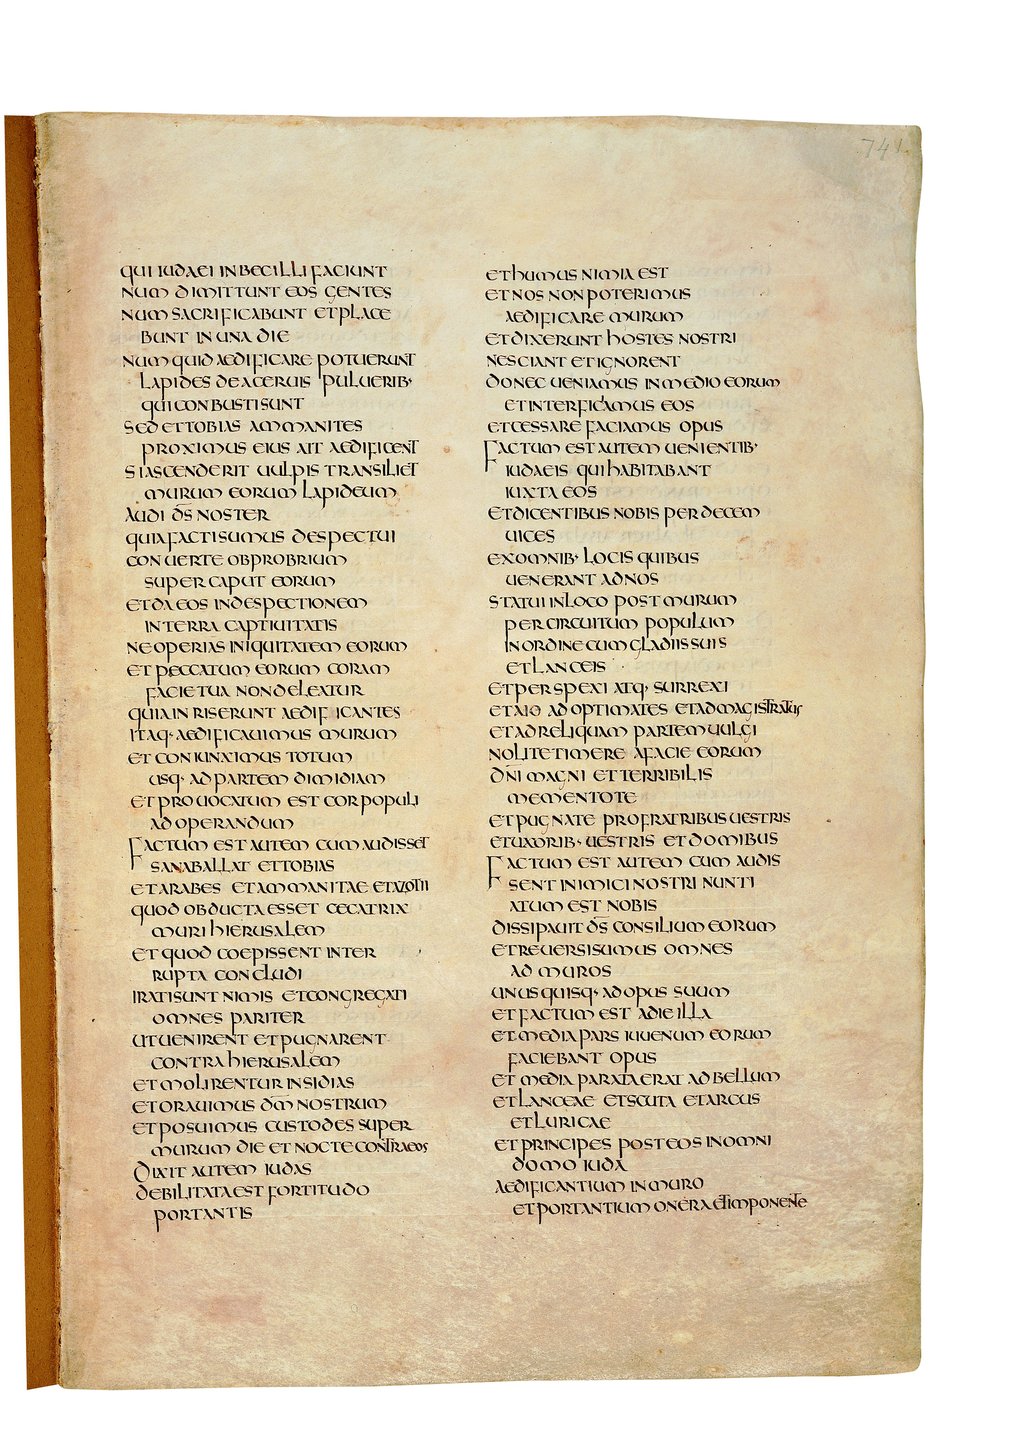 741
QUI IUDAEI INBECILLI FACIUNT
NUM DIMITTUNT EOS GENTES
NUM SACRIFICABUNT ET PLACE
BUNT IN UNA DIE
NUMQUID AEDIFICARE POTUERUNT
LAPIDES DE ACERUIS PULUERIB·
QUI CONBUSTI SUNT
SED ET TOBIAS AMMANITES
PROXIMUS EIUS AIT AEDIFICENT
SI ASCENDERIT UULPIS TRANSILIET
MURUM EORUM LAPIDEUM
AUDI D̄S NOSTER
QUIA FACTI SUMUS DESPECTUI
CONUERTE OBPROBRIUM
SUPER CAPUT EORUM
ET DA EOS IN DESPECTIONEM
IN TERRA CAPTIUITATIS
NE OPERIAS INIQUITATEM EORUM
ET PECCATUM EORUM CORAM
FACIE TUA NON DELEATUR
QUIA INRISERUNT AEDIFICANTES
ITAQ· AEDIFICAUIMUS MURUM
ET CONIUNXIMUS TOTUM
USQ· AD PARTEM DIMIDIAM
ET PROUOCATUM EST COR POPULI
AD OPERANDUM
FACTUM EST AUTEM CUM AUDISSET
SANABALLAT ET TOBIAS
ET ARABES ET AMMANITAE ET AZOTII
QUOD OBDUCTA ESSET CECATRIX
MURI HIERUSALEM
ET QUOD COEPISSENT INTER
RUPTA CONCLUDI
IRATI SUNT NIMIS ET CONGREGATI
OMNES PARITER
UT UENIRENT ET PUGNARENT
CONTRA HIERUSALEM
ET MOLIRENTUR INSIDIAS
ET ORAUIMUS D̄M NOSTRUM
ET POSUIMUS CUSTODES SUPER
MURUM DIE ET NOCTE CONTRA EOS
DIXIT AUTEM IUDAS
DEBILITATA EST FORTITUDO
PORTANTIS
ET HUMUS NIMIA EST
ET NOS NON POTERIMUS
AEDIFICARE MURUM
ET DIXERUNT HOSTES NOSTRI
NESCIANT ET IGNORENT
DONEC UENIAMUS IN MEDIO EORUM
ET INTERFICIAMUS EOS
ET CESSARE FACIAMUS OPUS
FACTUM EST AUTEM UENIENTIB·
IUDAEIS QUI HABITABANT
IUXTA EOS
ET DICENTIBUS NOBIS PER DECEM
UICES
EX OMNIB· LOCIS QUIBUS
UENERANT AD NOS
STATUI IN LOCO POST MURUM
PER CIRCUITUM POPULUM
IN ORDINE CUM GLADIIS SUIS
ET LANCEIS
ET PERSPEXI ATQ· SURREXI
ET AIO AD OPTIMATES ET AD MAGISTRATUS
ET AD RELIQUAM PARTEM UULGI
NOLITE TIMERE A FACIE EORUM
D̄N̄I MAGNI ET TERRIBILIS
MEMENTOTE
ET PUGNATE PRO FRATRIBUS UESTRIS
ET UXORIB· UESTRIS ET DOMIBUS
FACTUM EST AUTEM CUM AUDIS
SENT INIMICI NOSTRI NUNTI
ATUM EST NOBIS
DISSIPAUIT D̄S CONSILIUM EORUM
ET REUERSI SUMUS OMNES
AD MUROS
UNUSQUISQ· AD OPUS SUUM
ET FACTUM EST A DIE ILLA
ET MEDIA PARS IUUENUM EORUM
FACIEBANT OPUS
ET MEDIA PARATA ERAT AD BELLUM
ET LANCEAE ET SCUTA ET ARCUS
ET LURICAE
ET PRINCIPES POST EOS IN OMNI
DOMO IUDA
AEDIFICANTIUM IN MURO
ET PORTANTIUM ONERA ET IMPONENTE